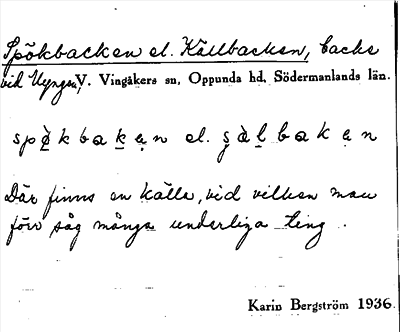 Spökbacken el. Källbacken, backe
vid Uyngen, V. Vingåkers sn, Oppunda hd, Södermanlands län.
spö̀kbakən el. çälbakən
Där finns en källa, vid vilken man
förr såg många underliga ting.
Karin Bergström 1936.